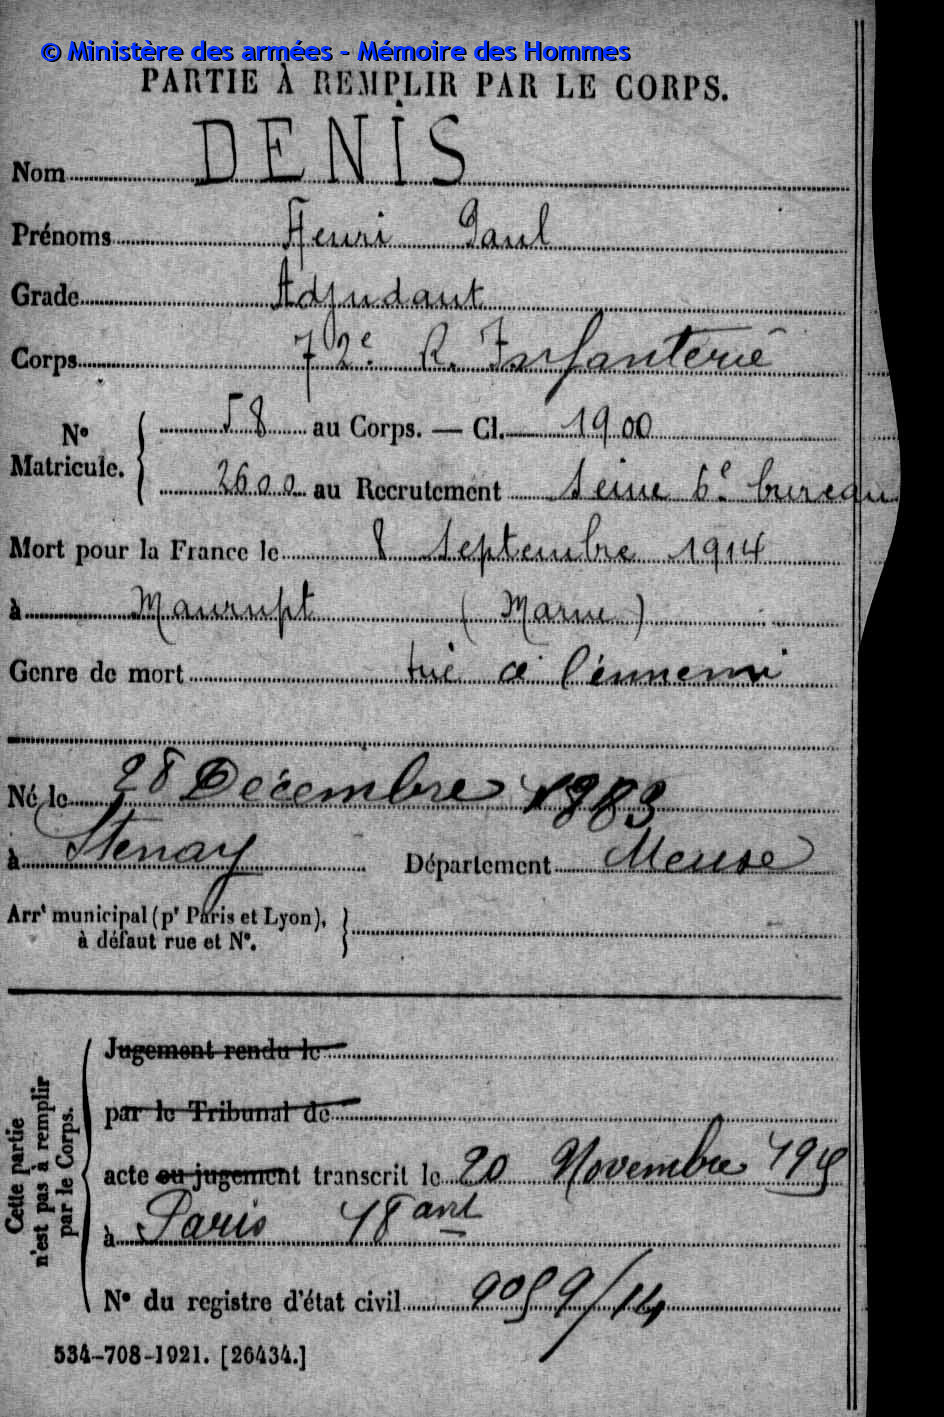 © Ministère des armées - Mémoire des Hommes
PARTIE À REMPLIR PAR LE CORPS.
Nom DENIS
Prénoms Henri Paul
Grade Adjudant
Corps 72e R. Infanterie
N° Matricule. 58 au Corps. — Cl. 1900
2600 au Recrutement Seine 6e bureau
Mort pour la France le 8 Septembre 1914
à Maurupt (Marne)
Genre de mort tué à l'ennemi
Né le 28 Décembre 1883
à Stenay Département Meuse
Arrt municipal (pr Paris et Lyon),
à défaut rue et N°.
Cette partie n'est pas à remplir par le Corps.
Jugement rendu le
par le Tribunal de
acte ou jugement transcrit le 20 Novembre 1915
à Paris 18 art
N° du registre d'état civil 9059/14
534-708-1921. [26434.]